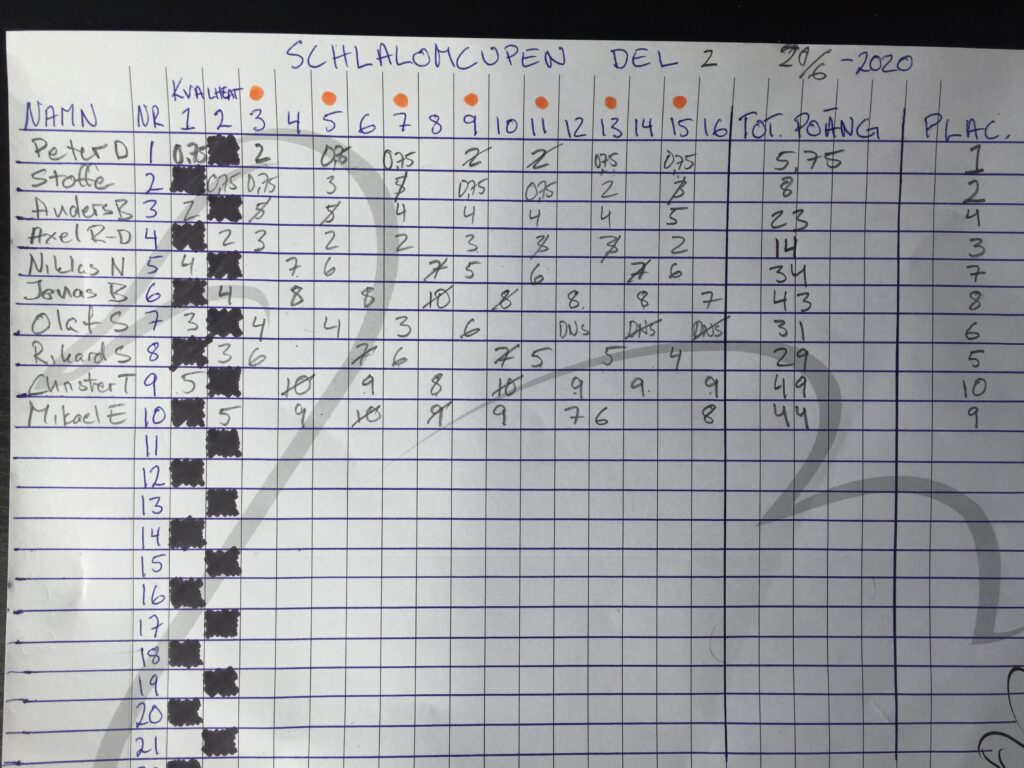 SCHLALOMCUPEN DEL 2 20/6 -2020
KVALHEAT
NAMN NR 1 2 3 4 5 6 7 8 9 10 11 12 13 14 15 16 TOT. POÄNG PLAC.
Peter D 1 0,75 2 0,75 0,75 2 2 0,75 0,75 5,75 1
Stoffe 2 0,75 0,75 3 0,75 0,75 2 3 8 2
Anders B 3 2 5 8 4 4 4 4 5 23 4
Axel R-D 4 2 3 2 2 3 3 3 2 14 3
Niklas N 5 4 7 6 7 5 6 7 6 34 7
Jonas B 6 4 8 8 10 8 8. 8 7 43 8
Olaf S 7 3 4 4 3 6 DNS DNS DNS 31 6
Rikard S 8 3 6 7 6 7 5 5 4 29 5
Christer T 9 5 10 9 8 10 9 9. 9 49 10
Mikael E 10 5 9 10 9 9 7 6 8 44 9
11
12
13
14
15
16
17
18
19
20
21